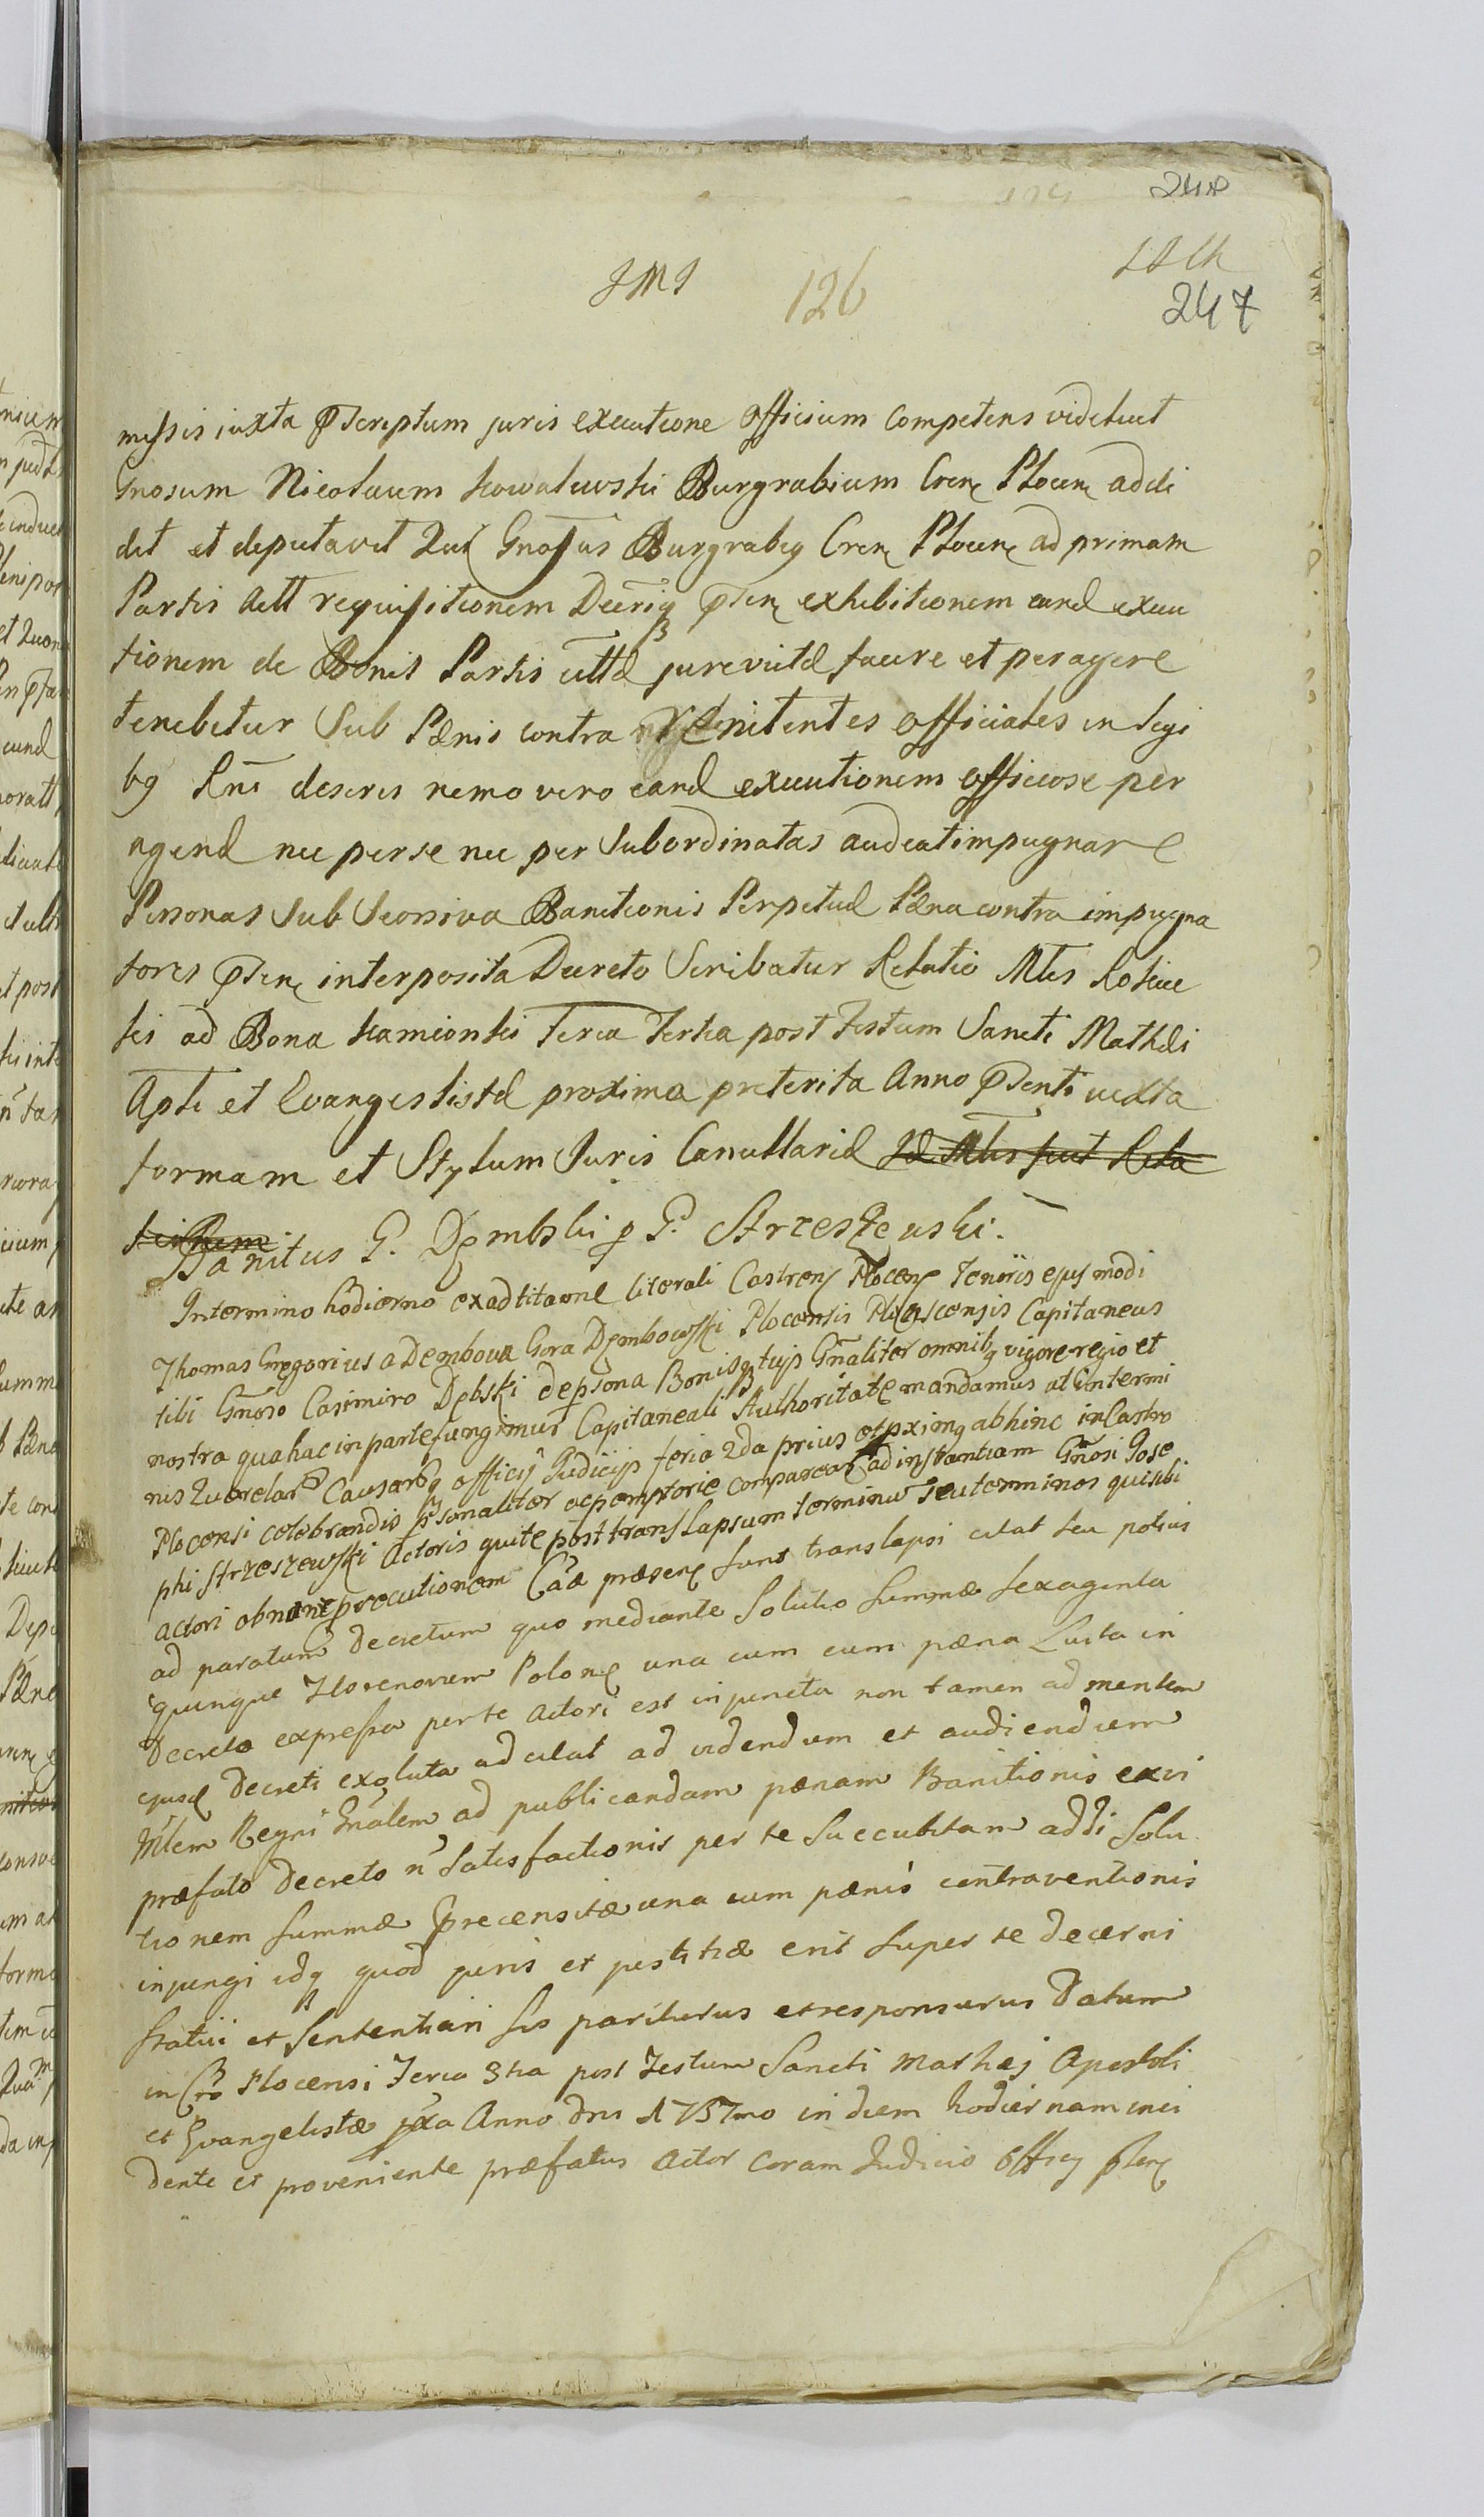 248
JMJ 126
247
missis iuxta pscriptum juris executione Officium Competens videlicet
Gnosum Nicolaum Kowalewski Burgrabium Cren Plocen addi
dit et deputavit Qui Gnosus Burgrabig Cren Plocen ad primam
Partis Act requisitionem Decriq pten exhibitionem eand execu
tionem de Bonis Partis cittæ jurevictæ facere et peragere
tenebitur Sub Pænis contra renitentes officiales in legi
bg Rni descris nemo vero eand executionem officiose per
agend nec per se nec per Subordinatas audeat impugnare
Personas Sub Seorsiva Banitionis Perpetuæ Pæna contra impugna
tores pten interposita Decreto Scribatur Relatio Mtis
ad Bona Kamionki Feria Tertia post Festum Sancti Mathæi
Apli et Evangelistæ proxima preterita Anno pdenti iuxta
formam et Stylum Juris Cancellariæ Id Mtis fecit Rela
tionem
Banitus G. Dembski p G. Strzeszewski.
In termino hodierno ex adcitatione literali Castren Plocen Tenoris ejusmodi
Thomas Gregorius a Dembowa Gora Dembowski Plocensis Plonscensis Capitaneus
tibi Gnoso Casimiro Debski de psona Bonisq tuis Gnaliter omnibq vigore regio et
nostra qua hac in parte fungimur Capitaneali Authoritate mandamus ut in termi
nis Querelar Causarq officij Judicijs feria 2da prius et pximq abhinc in Castro
Plocensi celebrandis psonaliter ac pemptorie compareas ad instantiam Gnosi Jose
phi Strzeszewski Actoris qui te post translapsum terminu seu terminos qui tibi
actori ob nane procutionem Caæ præsen sunt translapsi citat seu potius
ad paratum Decretum quo mediante Solutio Summæ sexaginta
quinque Florenorum Polon una cum cum pæna Luita in
Decreto expressa per te Actori est injuncta non tamen ad mentem
ejusd Decreti exoluta adcitat ad videndum et audiendum
Mlem Regni Gnalem ad publicandam pænam Banitionis ex vi
præfato Decreto n Satisfactionis per te Succubitam addi Solu
tionem Summæ precensitæ una cum pænis contraventionis
injungi idq quod juris et justitiæ erit super te decerni
statui et Sententiari sis pariturus et responsurus Datum
in Cro Plocensi Feria 3tia post Festum Sancti Mathej Apostoli
et Evangelistæ pxa Anno dni 1757mo in diem hodiernam inci
dente et proveniente præfatus Actor Coram Judicio Officij pten